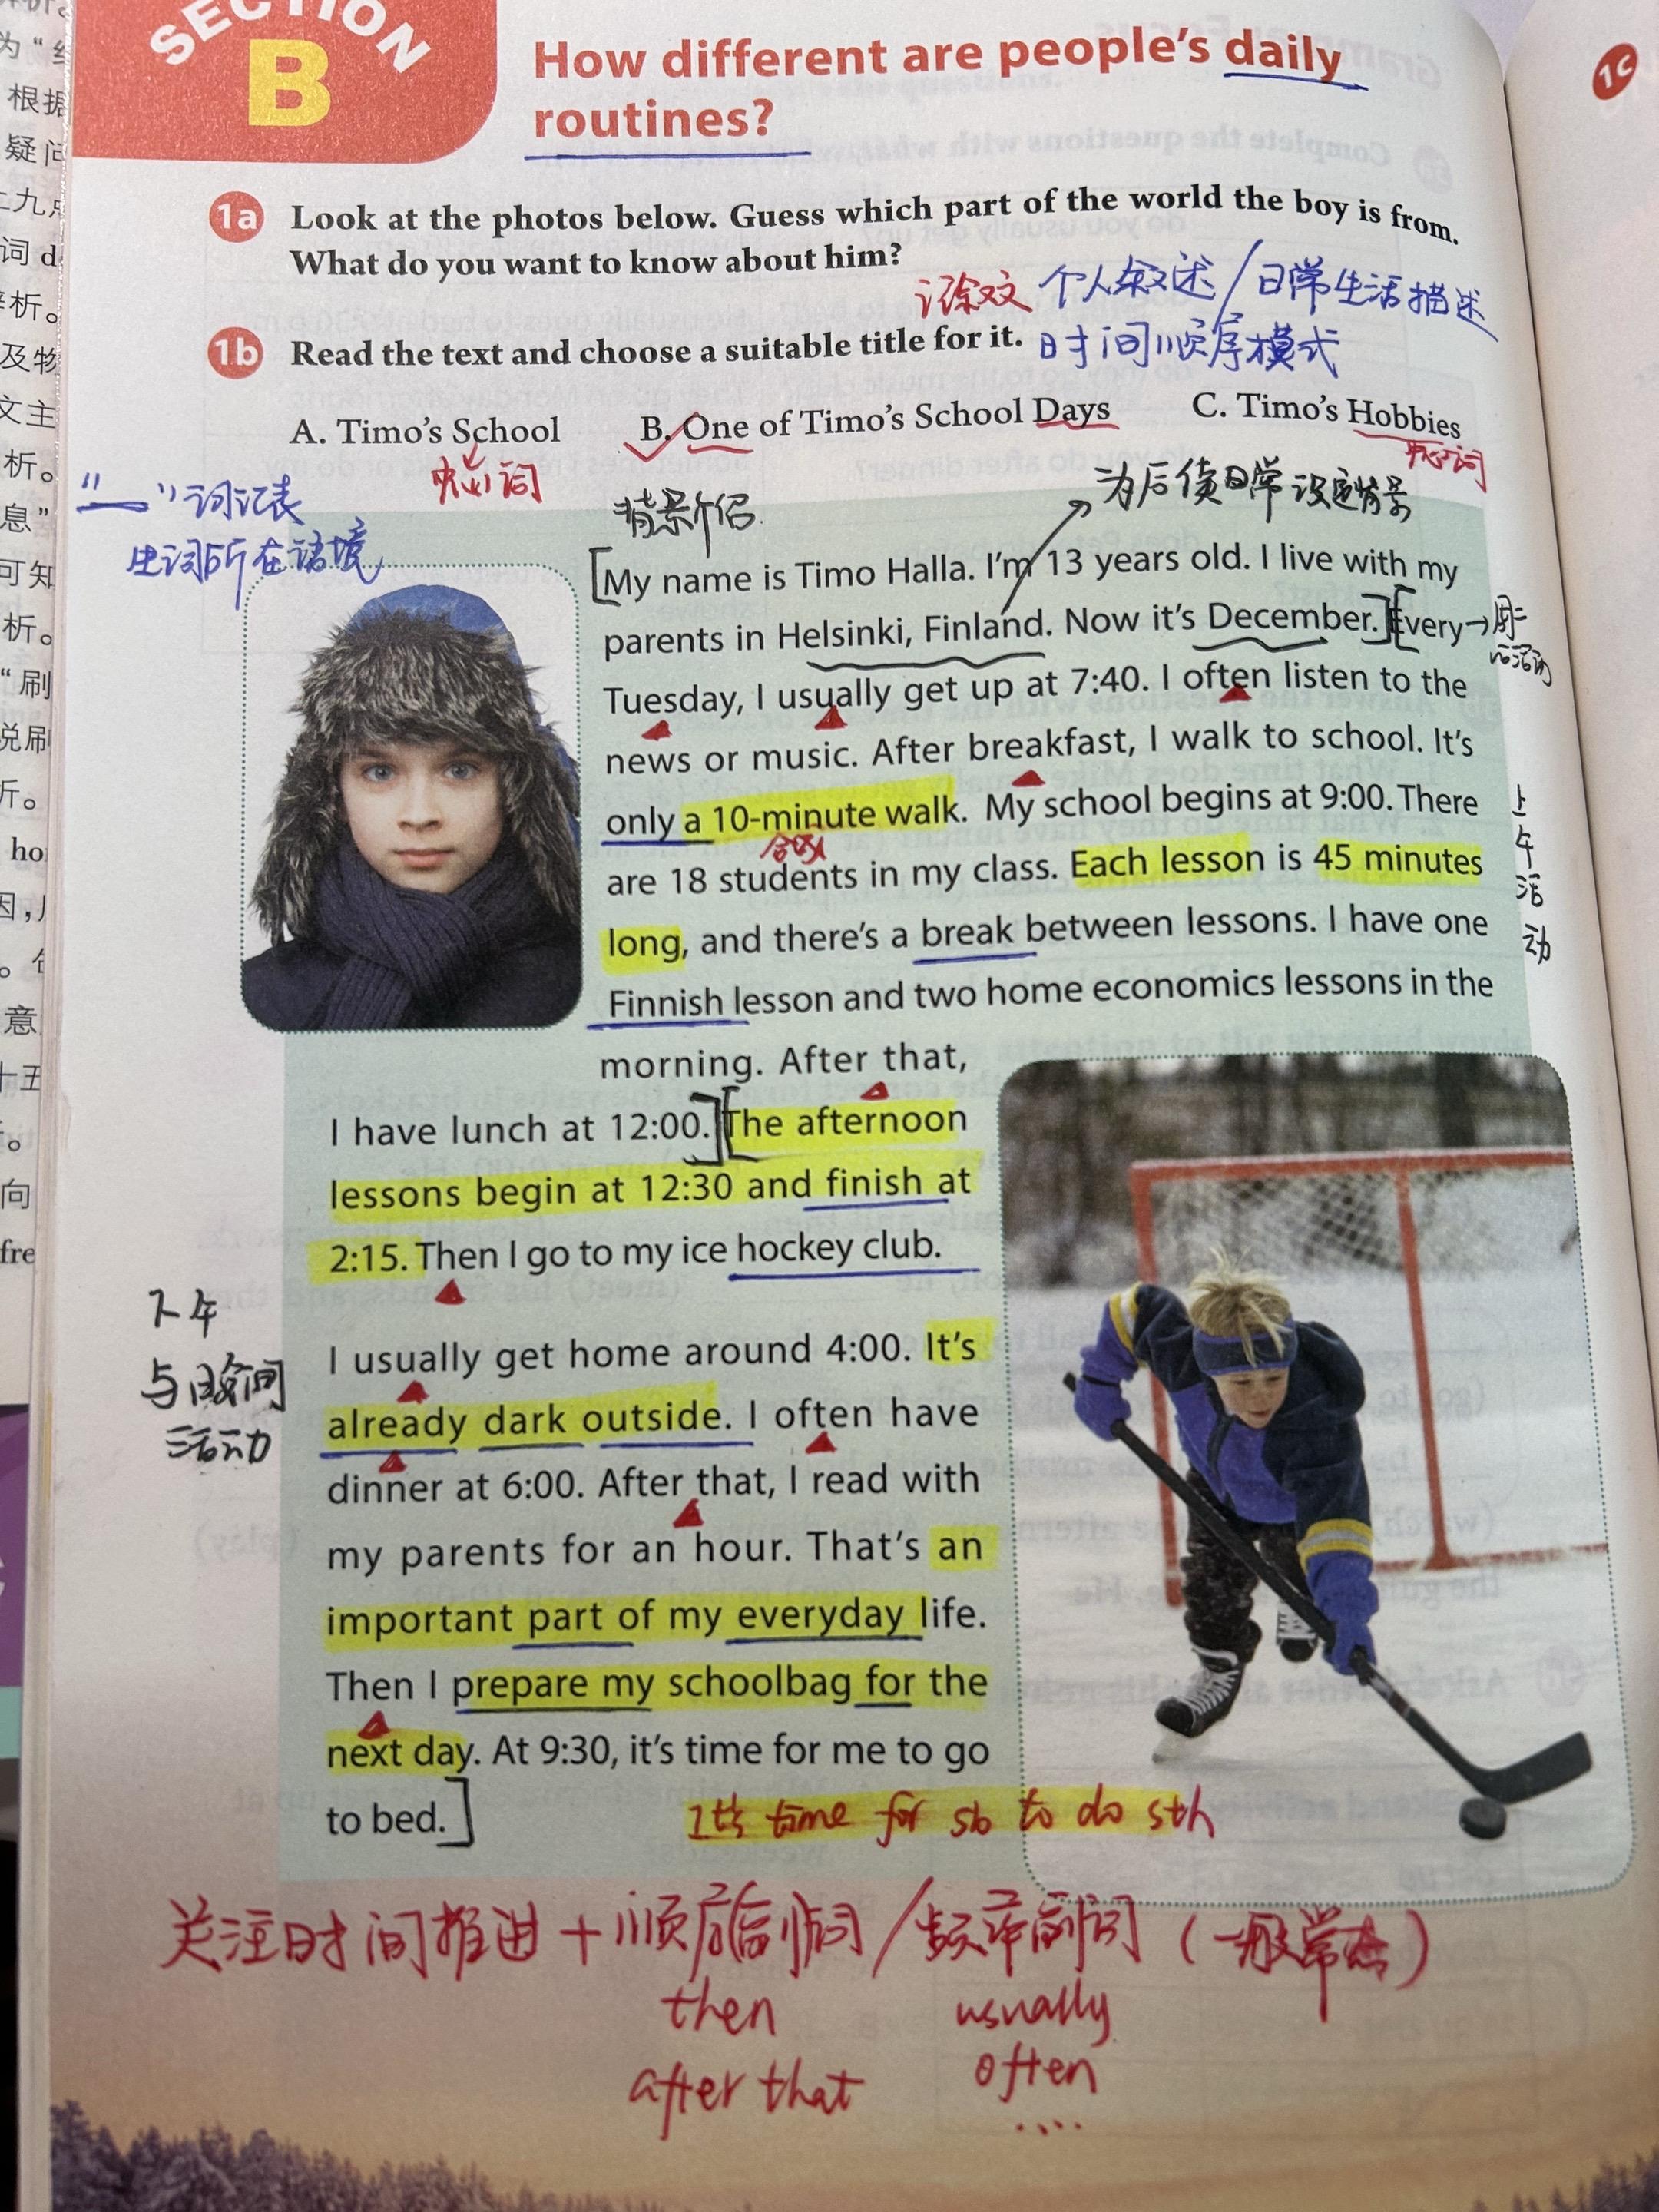 SECTION
B
How different are people's daily
routines?
1a Look at the photos below. Guess which part of the world the boy is from.
What do you want to know about him?
个人叙述/日常生活描述
1b Read the text and choose a suitable title for it.
时间顺序模式
A. Timo's School B. One of Timo's School Days C. Timo's Hobbies
中心词
中心词
"—"词汇表
生词所在语境
背景介绍
为后续日常设定背景
My name is Timo Halla. I'm 13 years old. I live with my
parents in Helsinki, Finland. Now it's December. Every
Tuesday, I usually get up at 7:40. I often listen to the
news or music. After breakfast, I walk to school. It's
only a 10-minute walk. My school begins at 9:00. There
are 18 students in my class. Each lesson is 45 minutes
long, and there's a break between lessons. I have one
Finnish lesson and two home economics lessons in the
morning. After that,
I have lunch at 12:00. The afternoon
lessons begin at 12:30 and finish at
2:15. Then I go to my ice hockey club.
上午活动
I usually get home around 4:00. It's
already dark outside. I often have
dinner at 6:00. After that, I read with
my parents for an hour. That's an
important part of my everyday life.
Then I prepare my schoolbag for the
next day. At 9:30, it's time for me to go
to bed.
下午
活动
It's time for sb to do sth
关注时间推进+顺序副词/频率副词(一般常态)
then usually
after that often
....
1c